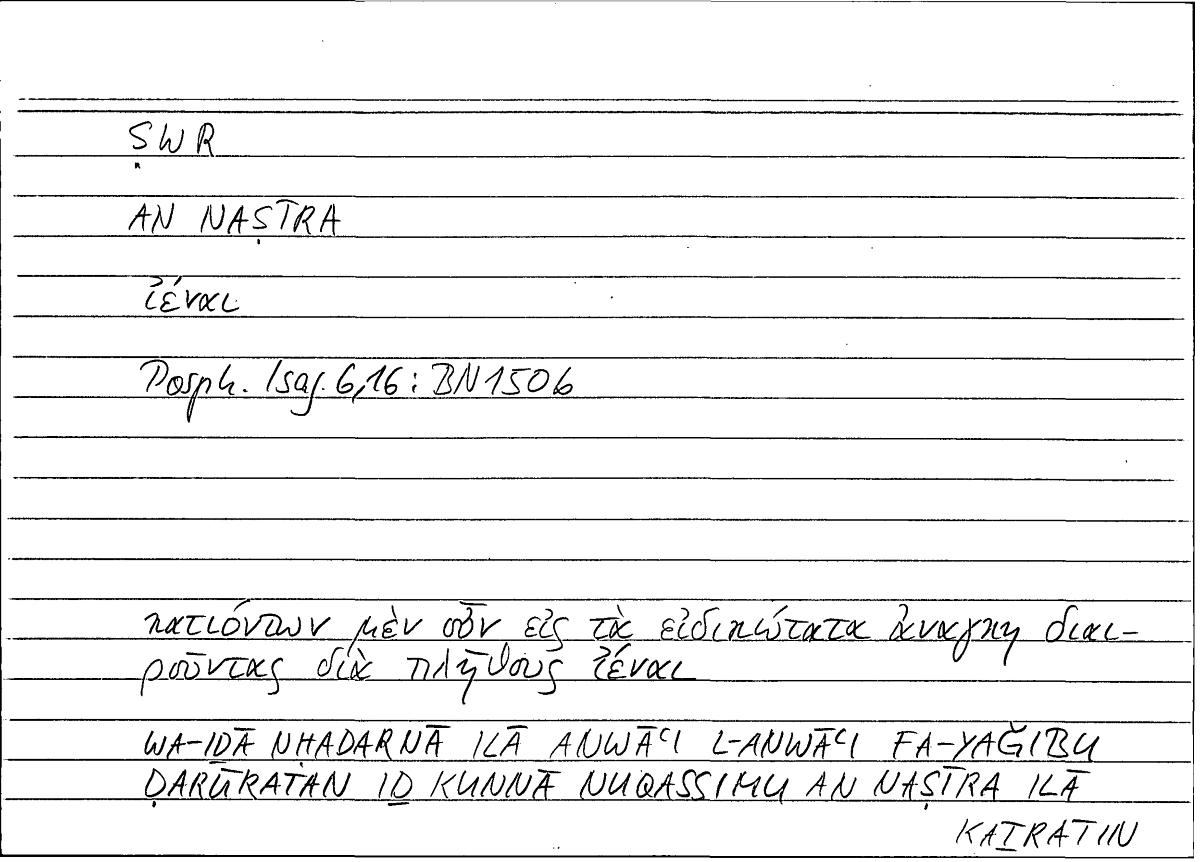 ṢWR
AN NAṢĪRA
ἰέναι
Porph. Isag. 6,16: BN1506
κατιόντων μὲν οὖν εἰς τὰ εἰδικώτατα ἀναγκη διαι-
ροῦντας διὰ πλήθους ἰέναι
WA-IḎĀ NḤADARNĀ ILĀ ANWĀʿI L-ANWĀʿI FA-YAĞIBU
ḌARŪRATAN IḎ KUNNĀ NUQASSIMU AN NAṢĪRA ILĀ
KAṮRATIN